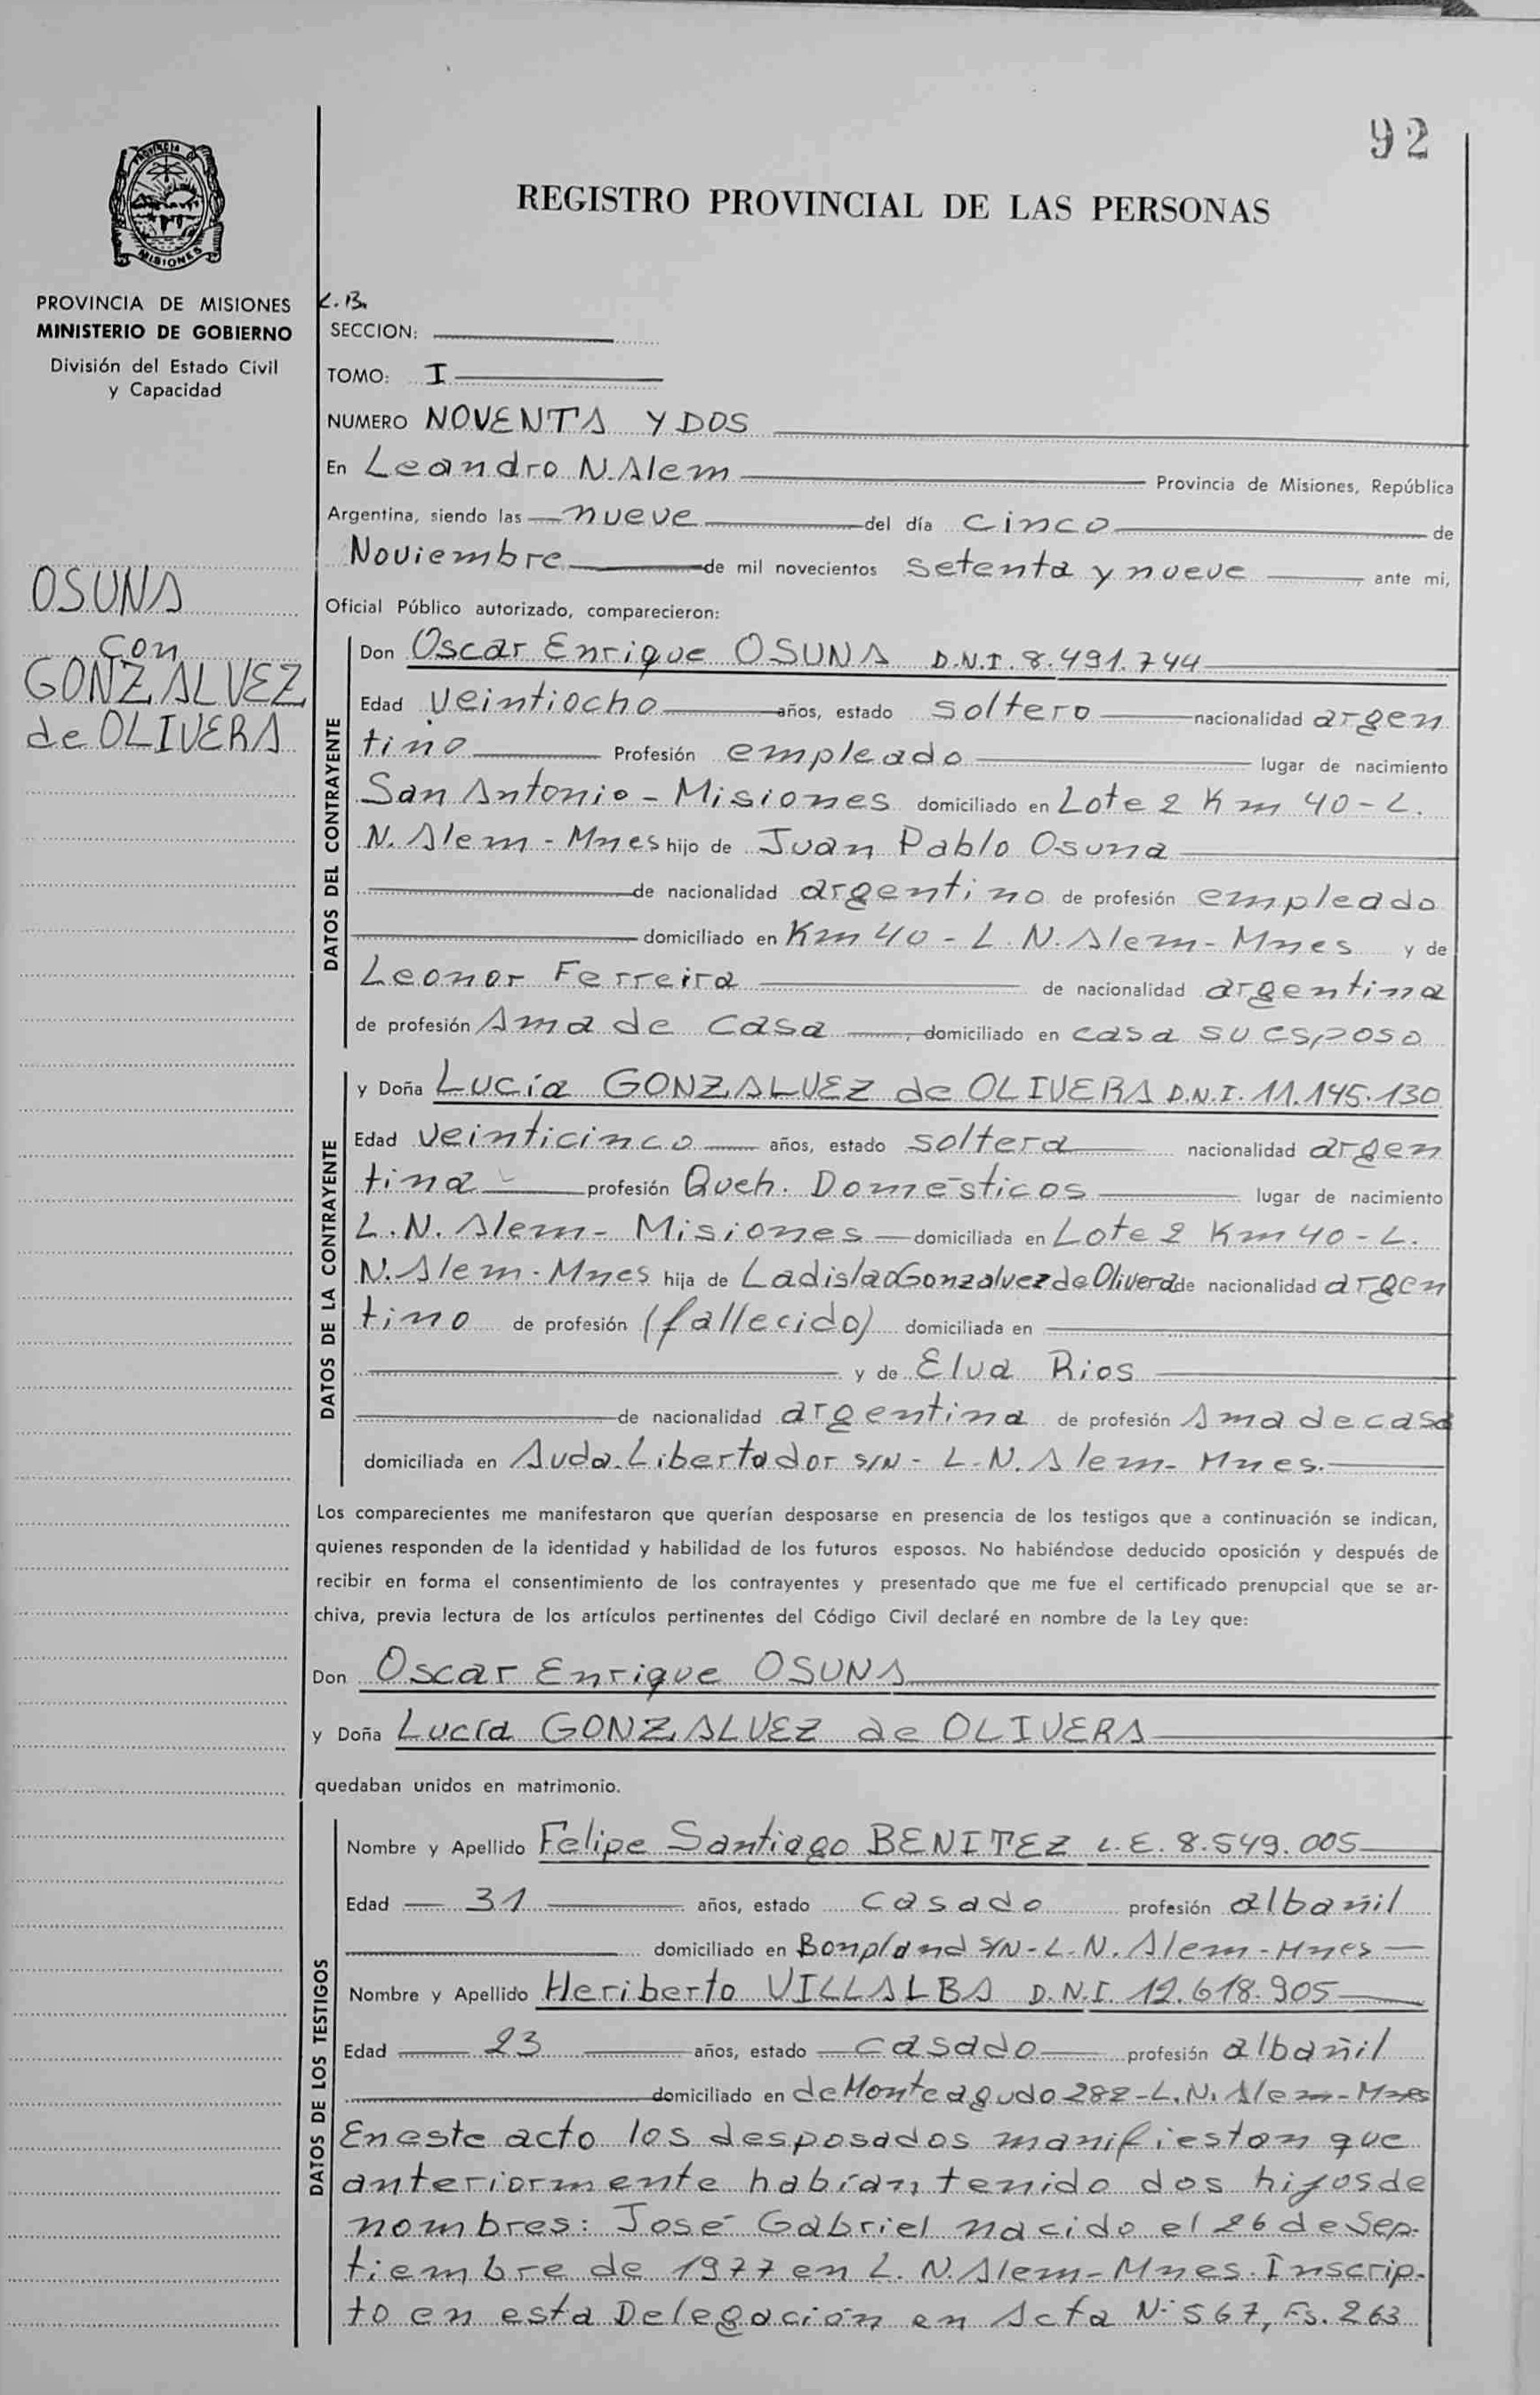 92
REGISTRO PROVINCIAL DE LAS PERSONAS
PROVINCIA DE
MISIONES
PROVINCIA DE MISIONES
MINISTERIO DE GOBIERNO
División del Estado Civil
y Capacidad
OSUNA
con
GONZALVEZ
de OLIVERA
L.B.
SECCION:
TOMO: I
NUMERO NOVENTA Y DOS
En Leandro N. Alem Provincia de Misiones, República
Argentina, siendo las nueve del día cinco de
Noviembre de mil novecientos setenta y nueve ante mi,
Oficial Público autorizado, comparecieron:
DATOS DEL CONTRAYENTE
Don Oscar Enrique OSUNA D.N.I. 8.491.744
Edad veintiocho años, estado soltero nacionalidad argen
tino Profesión empleado lugar de nacimiento
San Antonio - Misiones domiciliado en Lote 2 Km 40 - L.
N. Alem - Mnes hijo de Juan Pablo Osuna
de nacionalidad argentino de profesión empleado
domiciliado en Km 40 - L. N. Alem - Mnes y de
Leonor Ferreira de nacionalidad argentina
de profesión Ama de casa domiciliado en casa su esposo
DATOS DE LA CONTRAYENTE
y Doña Lucía GONZALVEZ de OLIVERA D.N.I. 11.145.130
Edad veinticinco años, estado soltera nacionalidad argen
tina profesión Queh. Domésticos lugar de nacimiento
L.N. Alem - Misiones domiciliada en Lote 2 Km 40 - L.
N. Alem - Mnes hija de Ladislao Gonzalvez de Olivera de nacionalidad argen
tino de profesión (fallecido) domiciliada en
y de Elva Rios
de nacionalidad argentina de profesión Ama de casa
domiciliada en Avda. Libertador S/N - L.N. Alem - Mnes.
Los comparecientes me manifestaron que querían desposarse en presencia de los testigos que a continuación se indican,
quienes responden de la identidad y habilidad de los futuros esposos. No habiéndose deducido oposición y después de
recibir en forma el consentimiento de los contrayentes y presentado que me fue el certificado prenupcial que se ar-
chiva, previa lectura de los artículos pertinentes del Código Civil declaré en nombre de la Ley que:
Don Oscar Enrique OSUNA
y Doña Lucía GONZALVEZ de OLIVERA
quedaban unidos en matrimonio.
DATOS DE LOS TESTIGOS
Nombre y Apellido Felipe Santiago BENITEZ L.E. 8.549.005
Edad 31 años, estado casado profesión albañil
domiciliado en Bonpland S/N - L.N. Alem - Mnes
Nombre y Apellido Heriberto VILLALBA D.N.I. 12.618.905
Edad 23 años, estado casado profesión albañil
domiciliado en de Monteagudo 282 - L.N. Alem - Mnes
En este acto los desposados manifiestan que
anteriormente habían tenido dos hijos de
nombres: José Gabriel nacido el 26 de Sep-
tiembre de 1977 en L. N. Alem - Mnes. Inscrip-
to en esta Delegación en Acta Nº 567, Fs. 263